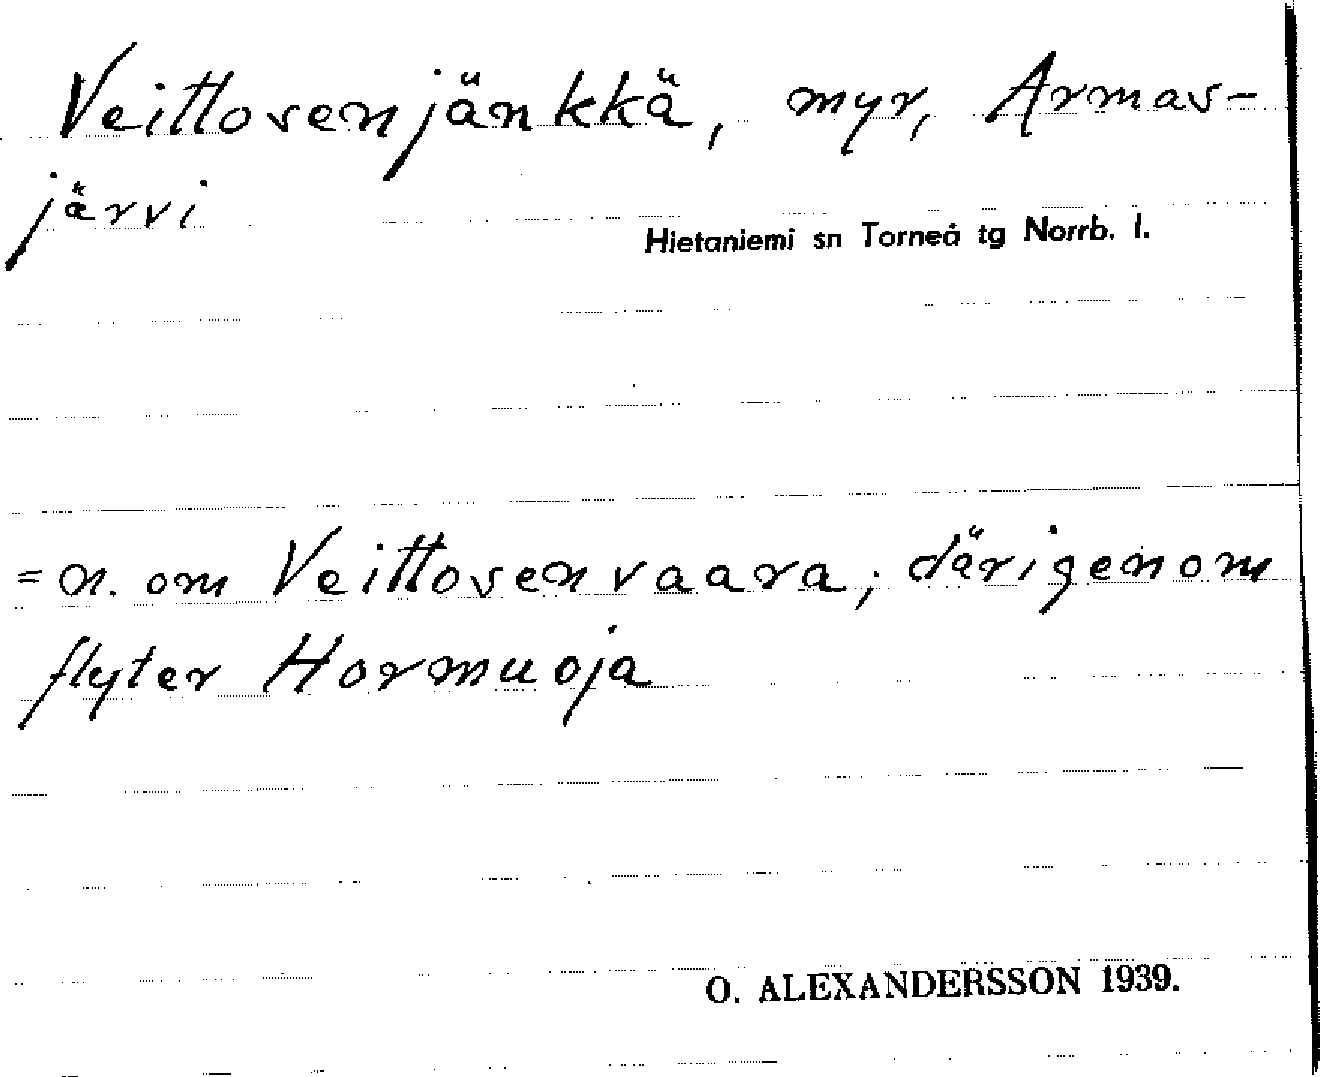 Veittosenjänkkä, myr, Armas-
järvi
Hietaniemi sn Torneå tg Norrb. l.
= n. om Veittosenvaara; därigenom
flyter Hormuoja
O. ALEXANDERSSON 1939.